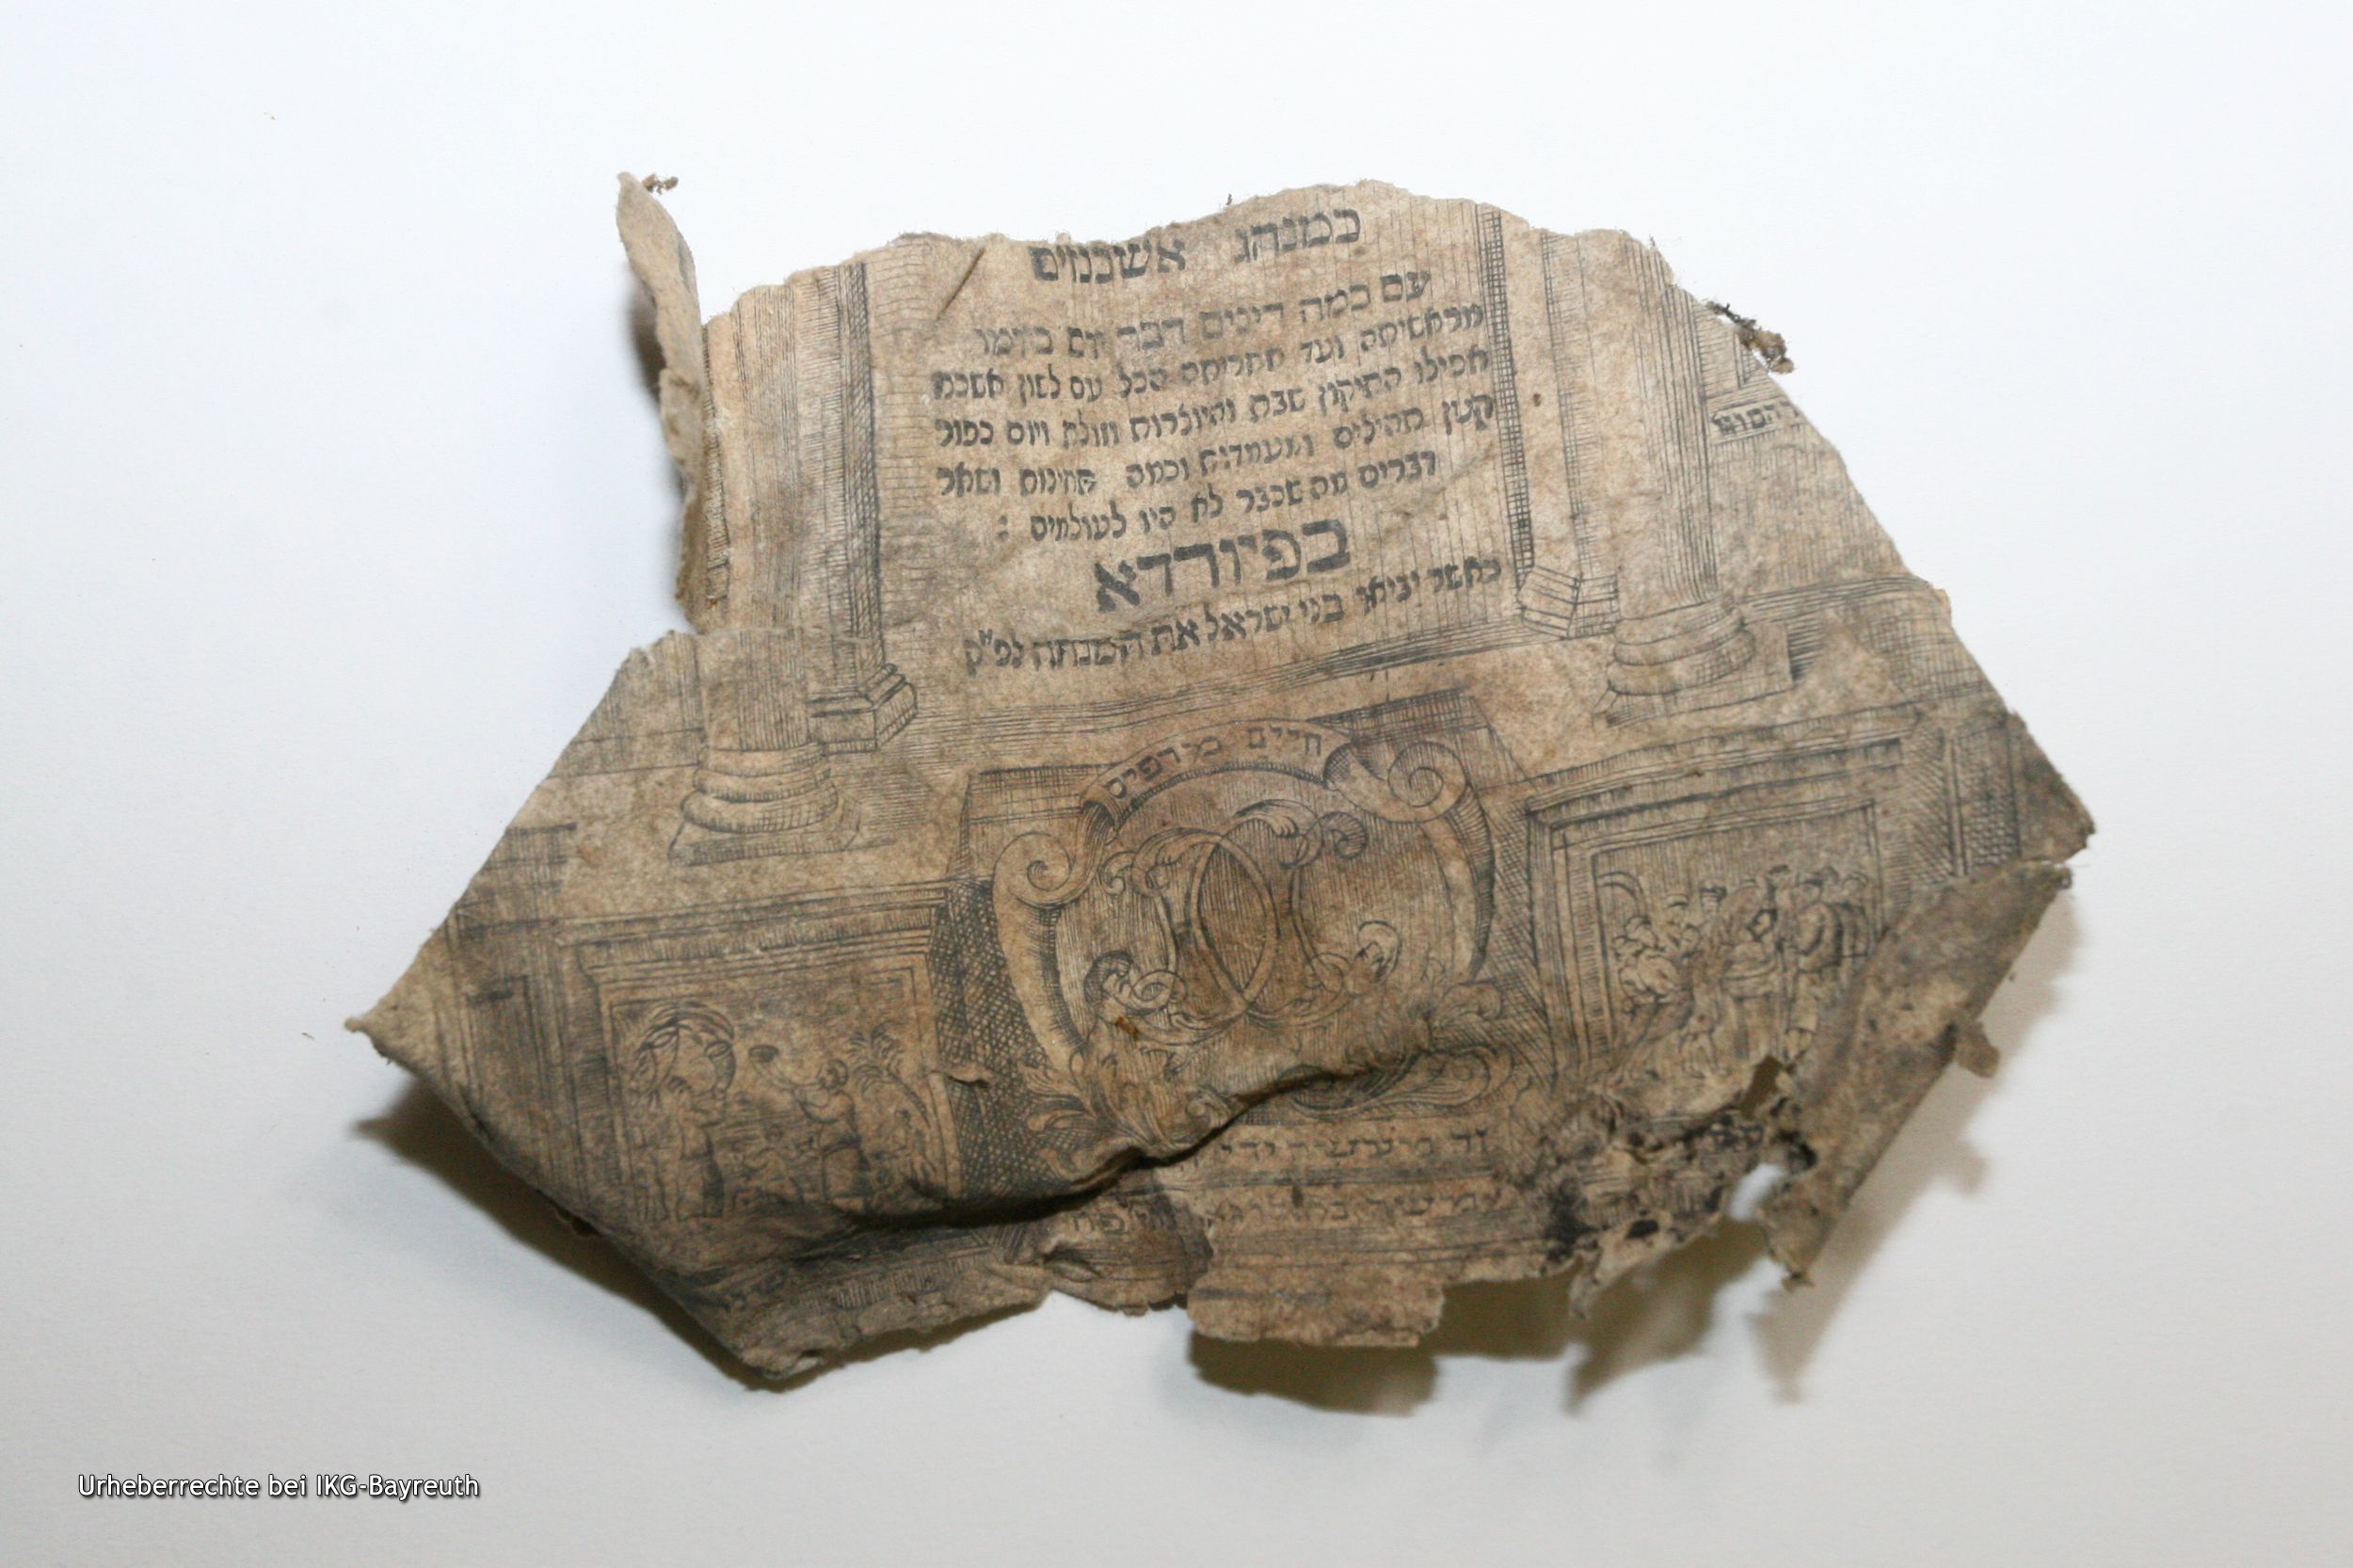 כמנהג אשכנזים
עם כמה דינים דבר יום ביומו
מראשיתה ועד אחריתה הכל עם לשון אשכנז
אפילו התיקון שבת והיוצרות וזולת ויום כפור
קטן תהילים ומעמדות וכמה תחינות ושאר
דברים מה שכבר לא היו לעולמים :
בפיורדא
כאשר יביאו בני ישראל את המנחה לפ"ק
חיים
Urheberrechte bei IKG-Bayreuth